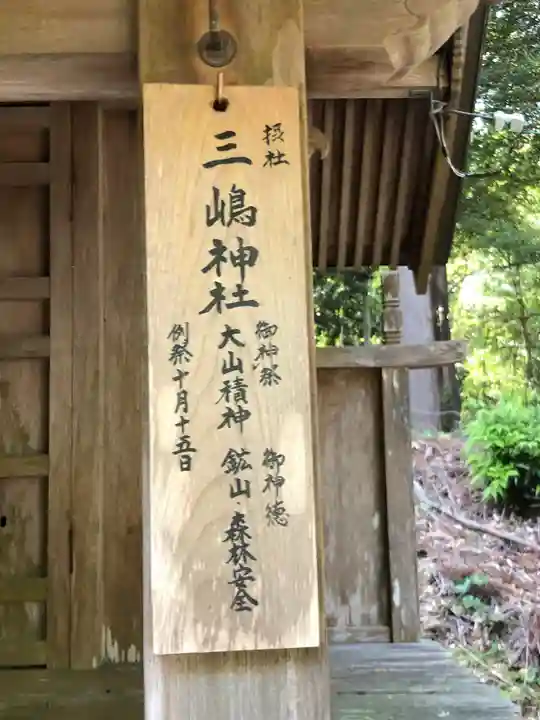 摂社
三嶋神社
御神祭
大山積神
御神徳
鉱山・森林安全
例祭十月十五日